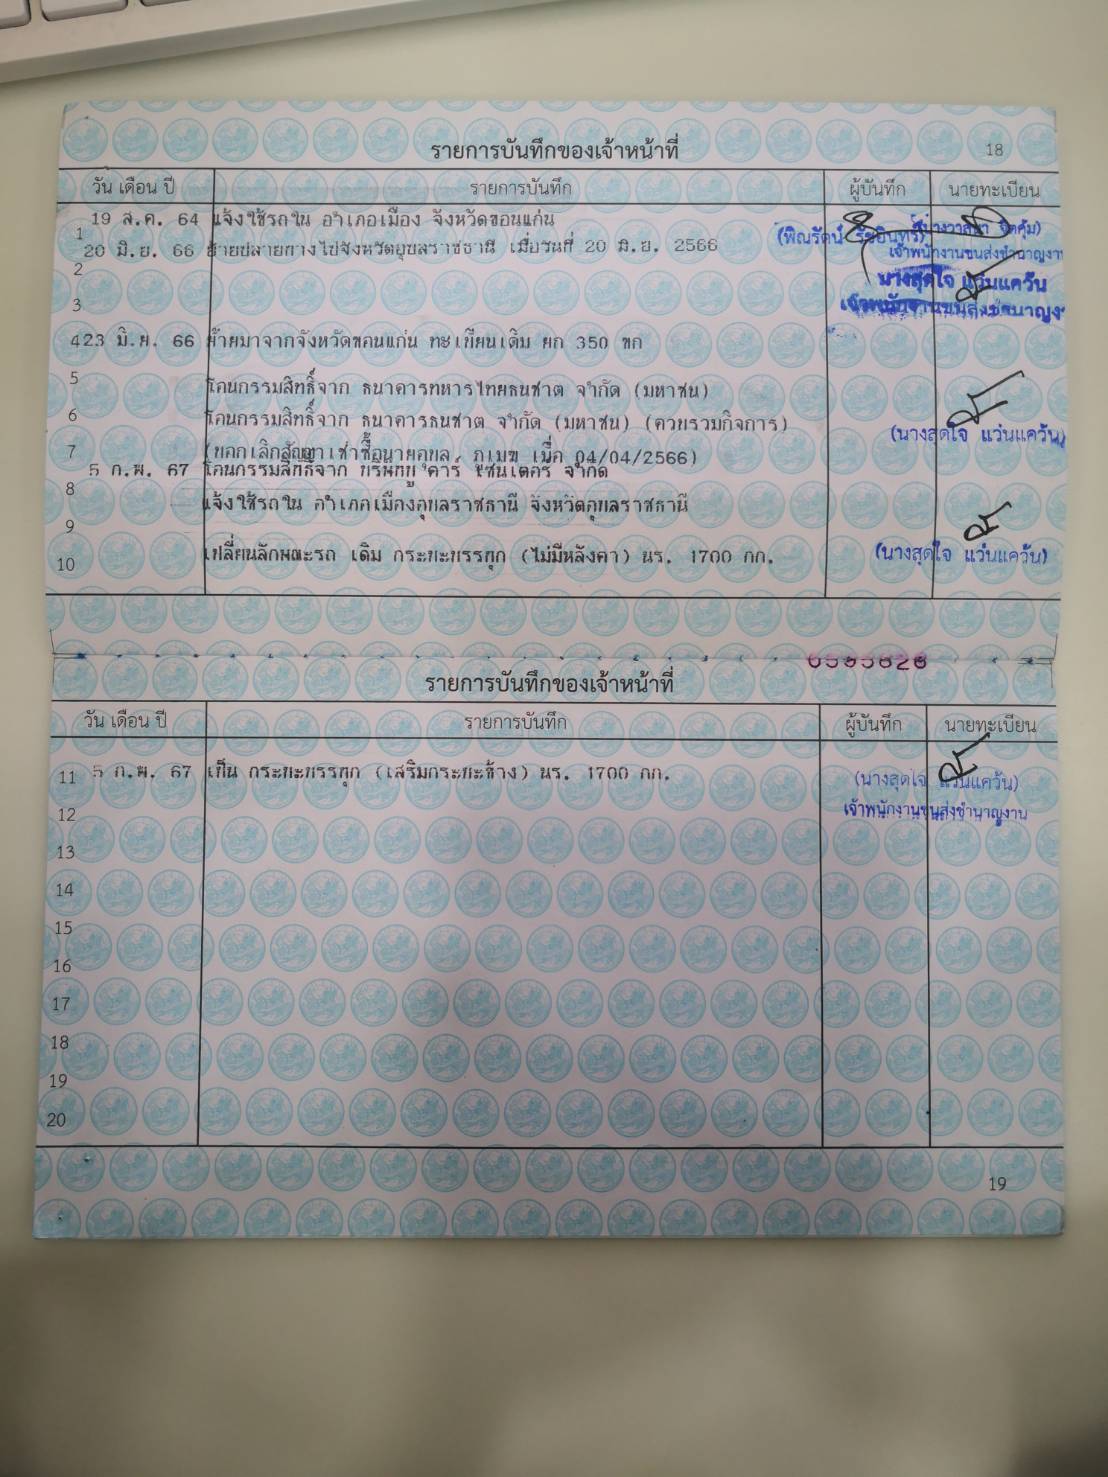 รายการบันทึกของเจ้าหน้าที่ 18
วัน เดือน ปี รายการบันทึก ผู้บันทึก นายทะเบียน
1 19 ส.ค. 64 แจ้งใช้รถใน อำเภอเมือง จังหวัดขอนแก่น
20 มิ.ย. 66 ย้ายปลายทางไปจังหวัดอุบลราชธานี เมื่อวันที่ 20 มิ.ย. 2566 (พิณรัตน์
เจ้าพนักงานขนส่งชำนาญงาน
2
นางสุดใจ แว่นแคว้น
3 เจ้าพนักงานขนส่งชำนาญง
4 23 มิ.ย. 66 ย้ายมาจากจังหวัดขอนแก่น ทะเบียนเดิม ยก 350 ขก
5 โอนกรรมสิทธิ์จาก ธนาคารทหารไทยธนชาต จำกัด (มหาชน)
6 โอนกรรมสิทธิ์จาก ธนาคารธนชาต จำกัด (มหาชน) (ควบรวมกิจการ)
(นางสุดใจ แว่นแคว้น)
7 (บอกเลิกสัญญาเช่าซื้อนายอุบล เมื่อ 04/04/2566)
5 ก.พ. 67 โอนกรรมสิทธิ์จาก คาร์ เซ็นเตอร์ จำกัด
8
แจ้งใช้รถใน อำเภอเมืองอุบลราชธานี จังหวัดอุบลราชธานี
9
10 เปลี่ยนลักษณะรถ เดิม กระบะบรรทุก (ไม่มีหลังคา) นร. 1700 กก. (นางสุดใจ แว่นแคว้น)
6595626
รายการบันทึกของเจ้าหน้าที่
วัน เดือน ปี รายการบันทึก ผู้บันทึก นายทะเบียน
11 5 ก.พ. 67 เป็น กระบะบรรทุก (เสริมกระบะข้าง) นร. 1700 กก. (นางสุดใจ แว่นแคว้น)
12 เจ้าพนักงานขนส่งชำนาญงาน
13
14
15
16
17
18
19
20
19